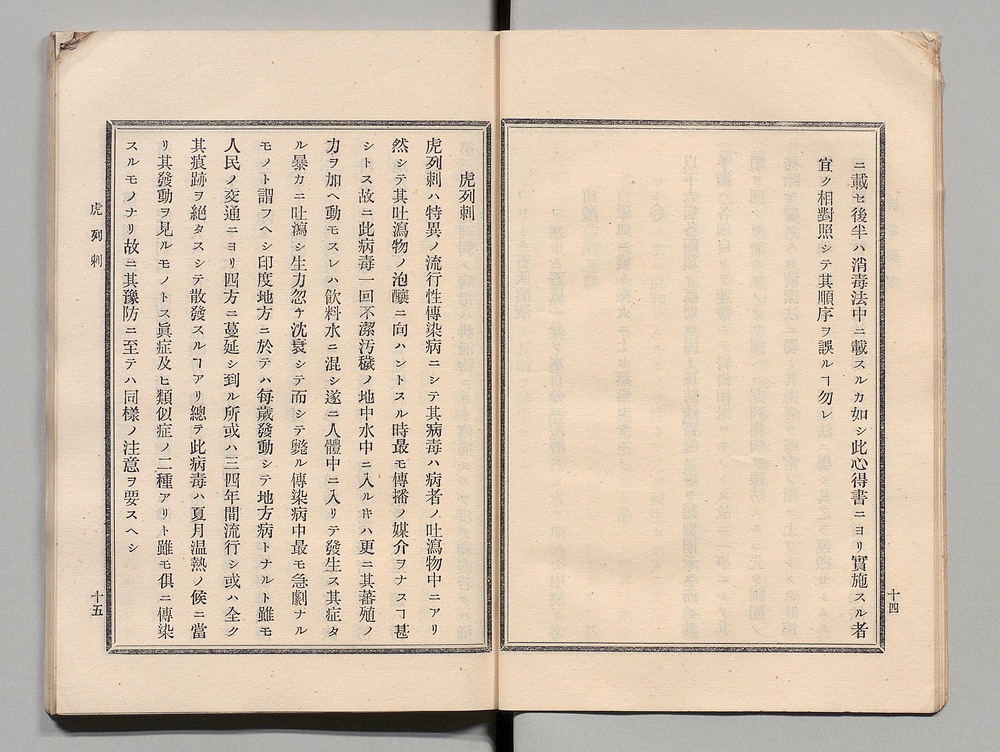 ニ載セ後半ハ消毒法中ニ載スルカ如シ此心得書ニヨリ實施スル者
宜ク相對照シテ其順序ヲ誤ルヿ勿レ
十四
虎列刺
虎列刺ハ特異ノ流行性傳染病ニシテ其病毒ハ病者ノ吐瀉物中ニアリ
然シテ其吐瀉物ノ泡釀ニ向ハントスル時最モ傳播ノ媒介ヲナスヿ甚
シトス故ニ此病毒一回不潔汚穢ノ地中水中ニ入ルキハ更ニ其蕃殖ノ
力ヲ加ヘ動モスレハ飮料水ニ混シ遂ニ人體中ニ入リテ發生ス其症タ
ル暴カニ吐瀉シ生力忽チ沈衰シテ而シテ斃ル傳染病中最モ急劇ナル
モノト謂フヘシ印度地方ニ於テハ每歲發動シテ地方病トナルト雖モ
人民ノ交通ニヨリ四方ニ蔓延シ到ル所或ハ三四年間流行シ或ハ全ク
其痕跡ヲ絕タスシテ散發スルヿアリ總テ此病毒ハ夏月温熱ノ候ニ當
リ其發動ヲ見ルモノトス眞症及ヒ類似症ノ二種アリト雖モ俱ニ傳染
スルモノナリ故ニ其豫防ニ至テハ同樣ノ注意ヲ要スヘシ
虎列刺
十五